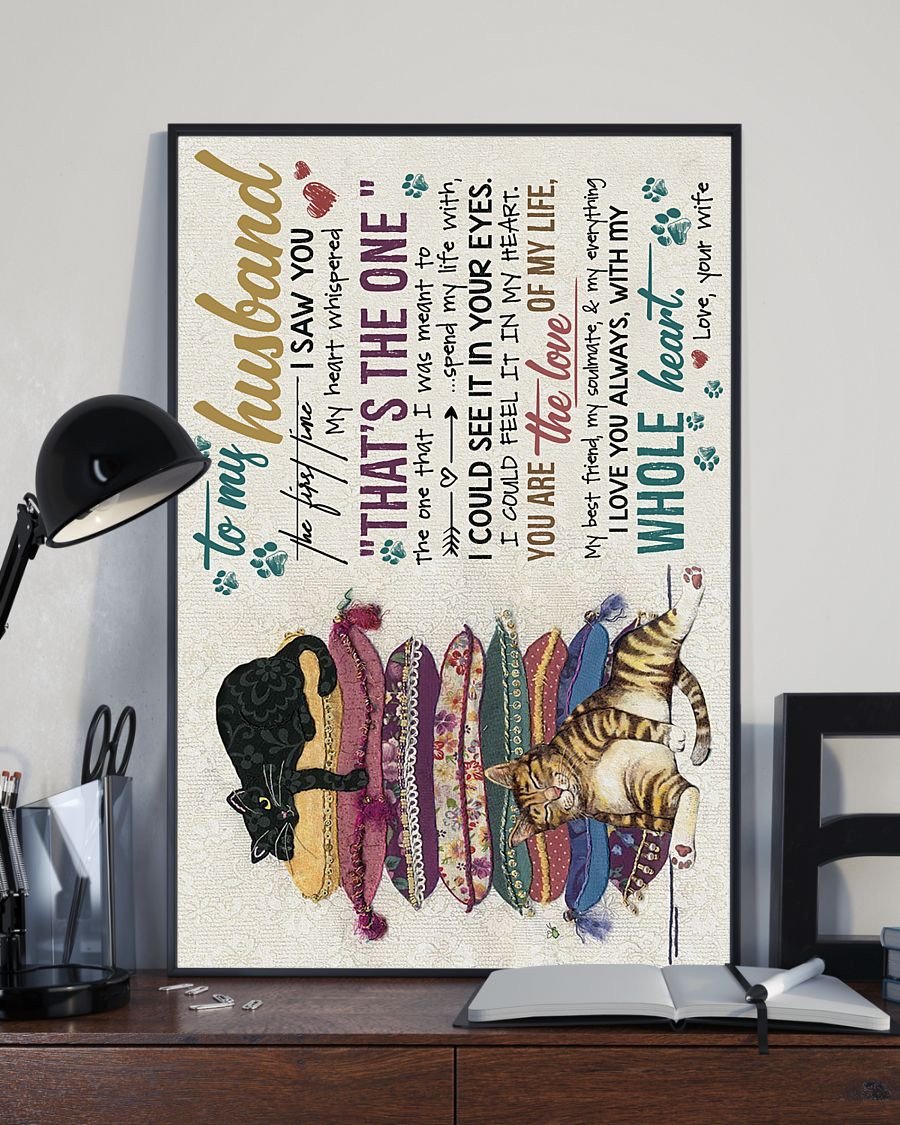 to my husband
the first time I SAW YOU
My heart whispered
"THAT'S THE ONE"
the one that I was meant to
...spend my life with,
I COULD SEE IT IN YOUR EYES.
I COULD FEEL IT IN MY HEART.
YOU ARE the love OF MY LIFE,
My best friend, my soulmate, & my everything
I LOVE YOU ALWAYS, WITH MY
WHOLE heart.
Love, your wife